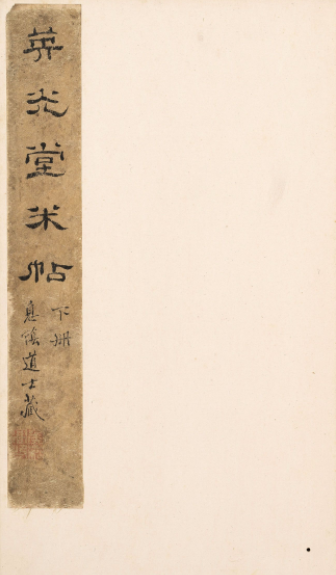 英光堂米帖
下册
息陰道士藏